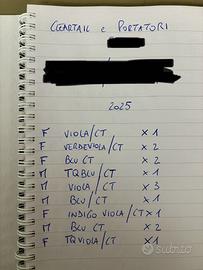 CLEARTAIL E PORTATORI
2025
F VIOLA/CT X 2
F VERDEVIOLA/CT X 2
F BLU CT X 2
M TQ BLU/CT X 1
M VIOLA/CT X 3
M BLU/CT X 1
F INDIGO VIOLA/CT X 1
M BLU CT X 2
F TQ VIOLA/CT X 1
subito